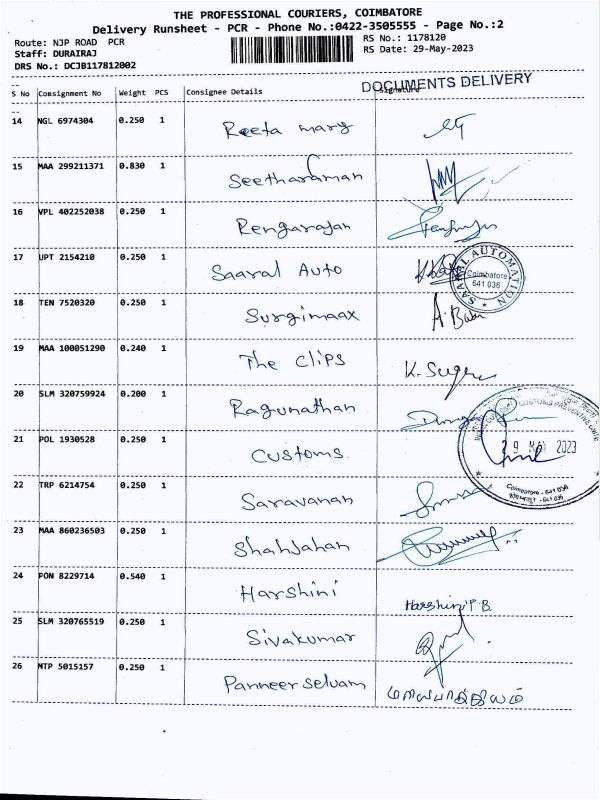 THE PROFESSIONAL COURIERS, COIMBATORE
Delivery Runsheet - PCR - Phone No.:0422-3505555 - Page No.:2
Route: NJP ROAD PCR
RS No.: 1178120
Staff: DURAIRAJ
RS Date: 29-May-2023
DRS No.: DCJB117812002
DOCUMENTS DELIVERY
S No Consignment No Weight PCS Consignee Details Signature
14 NGL 6974304 0.250 1 Reeta mary
15 MAA 299211371 0.830 1 Seetharaman
16 VPL 402252038 0.250 1 Rengarajan
17 UPT 2154210 0.250 1 Saaral Auto
SAARAL AUTOMATION
Coimbatore
641 036
18 TEN 7520320 0.250 1 Surgimaax A. Babu
19 MAA 100051290 0.240 1 The Clips K. Sugu
20 SLM 320759924 0.200 1 Ragunathan
21 POL 1930528 0.250 1 Customs.
CUSTOMS PREVENTIVE
29 MAY 2023
Coimbatore - 641 036
22 TRP 6214754 0.250 1 Saravanan
23 MAA 860236503 0.250 1 Shahjahan
24 PON 8229714 0.540 1 Harshini Harshini P.B
25 SLM 320765519 0.250 1 Sivakumar
26 MTP 5015157 0.250 1 Panneer selvam